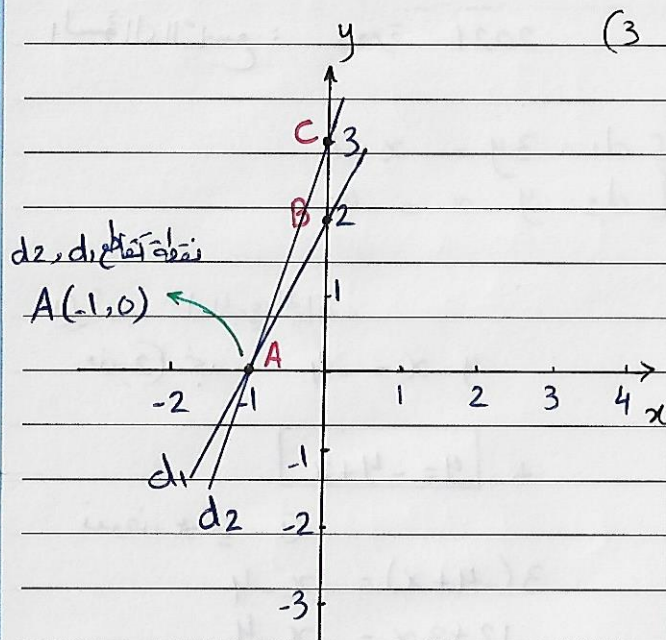 (3
y
C 3
B 2
نقطة تقاطع d2, d1
1
A(-1,0)
A
-2 -1 1 2 3 4 x
d1
-1
d2
-2
-3